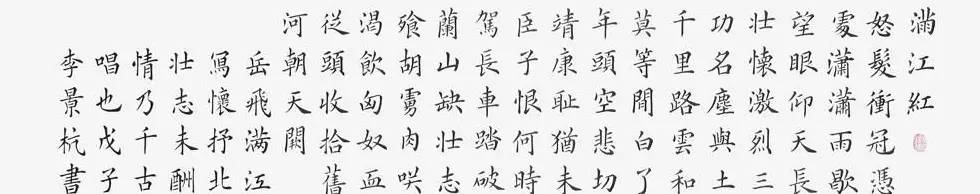 滿江紅
怒髮衝冠憑
處瀟瀟雨歇
望眼仰天長
壯懷激烈三
功名塵與土
千里路雲和
莫等間白了
年頭空悲切
靖康耻猶未
臣子恨何時
駕長車踏破
蘭山缺壯志
飱胡虜肉咲
渴飲匈奴血
從頭收拾舊
河朝天闕
岳飛满江
寫懷抒北
壯志未酬
情乃千古
唱也戊子
李景杭書